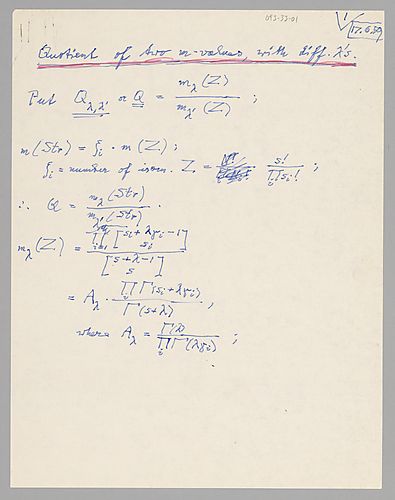 093-33-01
1
17.6.59
Quotient of two m-values, with diff. λ's.
Put Q_{λ,λ'} or Q = m_λ(Z) / m_{λ'}(Z) ;
m(Str) = ζ_i · m(Z) ;
ζ_i = number of isom. Z = s! / ∏_i s_i! ;
∴ Q = m_λ(Str) / m_{λ'}(Str) .
m_λ(Z) = ∏_{i=1} [s_i + λγ_i − 1 / s_i] / [s + λ − 1 / s]
= A_λ · ∏_i Γ(s_i + λγ_i) / Γ(s + λ) ,
where A_λ = Γ(λ) / ∏_i Γ(λγ_i) ;